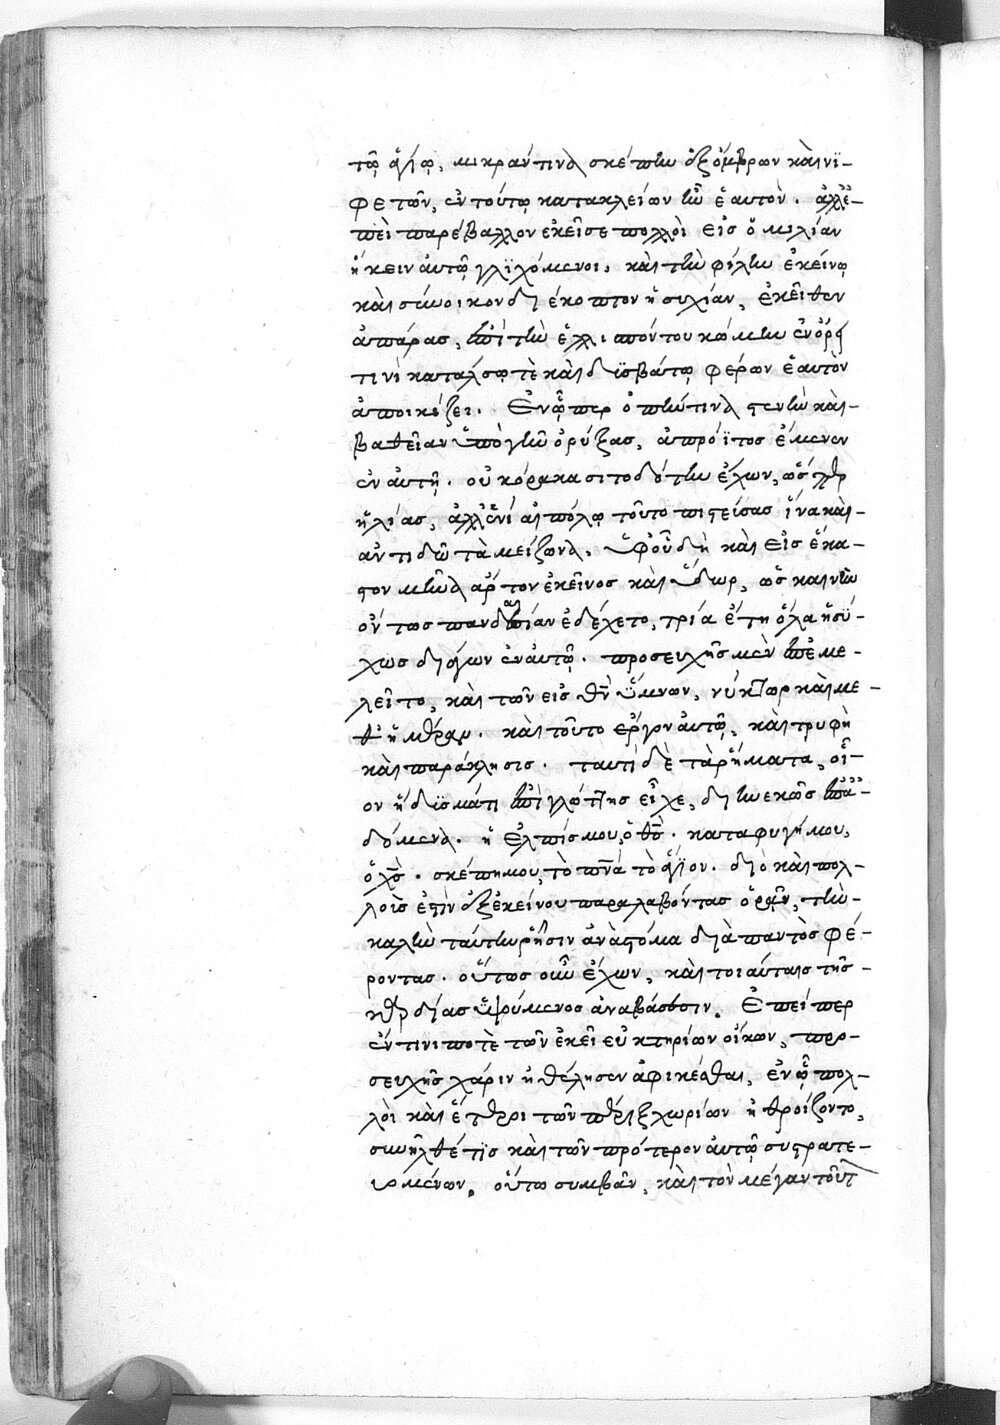 τῷ ἁγίῳ, μικράν τινα σκέπην ἐξ ὄμβρων καὶ νϊ-
φετῶν, ἐν τούτῳ κατακλείων ἦν ἑαυτὸν. ἀλλ' ἐ-
πεὶ παρέβαλλον ἐκεῖσε πολλοὶ εἰς ὁμιλίαν
ἥκειν αὐτῷ γλϊχόμενοι, καὶ τὴν φίλην ἐκείνῳ
καὶ σύνοικον διέκοπτον ἡσυχίαν, ἐκεῖθεν
ἀπάρας, ἐπὶ τὴν ἑλλιπόντου κώμην ἐν ὄρει
τινὶ καταλσῳ τὲ καὶ δυσβάτῳ φέρων ἑαυτὸν
ἀποικίζει. Ἐν ᾧπερ ὀπήν τινα στενὴν καὶ
βαθεῖαν ὑπὸ γῆν ὀρύξας, ἀπρόϊτος ἔμενεν
ἐν αὐτῇ. οὐ κόρακα σιτοδότην ἔχων, ὥσπερ
ἠλίας, ἀλλ' ἑνὶ αἰπόλῳ τοῦτο πιστεύσας ἵνα καὶ
ἀντιδῶ τὰ μείζονα. ὑφ' οὗ δὴ καὶ εἰς ἕκα-
στον μῆνα ἄρτον ἐκεῖνος καὶ ὕδωρ, ὡς καινὴν
ὄντως πανδαισίαν ἐδέχετο, τρία ἔτη ὅλα ἡσύ-
χως διάγων ἐν αὐτῷ. προσευχῆς μὲν ἐπεμε-
λεῖτο, καὶ τῶν εἰς θν̅ ὕμνων, νύκτωρ καὶ με-
θ' ἡμέραν. καὶ τοῦτο ἔργον αὐτῷ, καὶ τρυφὴ
καὶ παράκλησις. ταυτὶ δὲ τὰ ῥήματα, οἷ-
ον ἥδυσμά τι ἐπὶ γλώττης εἶχε, διηνεκῶς ἐπᾳ-
δόμενα. ἡ ἐλπίς μου, ὁ θς̅. καταφυγή μου,
ὁ χς̅. σκέπη μου, τὸ πνα̅ τὸ ἅγϊον. διὸ καὶ πολ-
λοῖς ἐστὶν ἐξ ἐκείνου παραλαβόντας ὁρᾶν, τὴν
καλὴν ταύτην ῥῆσιν ἀνὰ στόμα διὰ παντὸς φέ-
ροντας. οὕτως οὖν ἔχων, καὶ τοιαύταις τῆς
καρδίας ὑψούμενος ἀναβάσεσιν. Ἐπείπερ
ἔν τινι ποτὲ τῶν ἐκεῖ εὐκτηρίων οἴκων, προ-
σευχῆς χάριν ἠθέλησεν ἀφικέσθαι, ἐν ᾧ πολ-
λοὶ καὶ ἕτεροι τῶν πέριξ χωρίων ἠθροίζοντο,
συνῆλθέ τϊς καὶ τῶν πρότερον αὐτῷ συστρατε-
υομένων. οὕτω συμβὰν, καὶ τὸν μέγαν τοῦτ